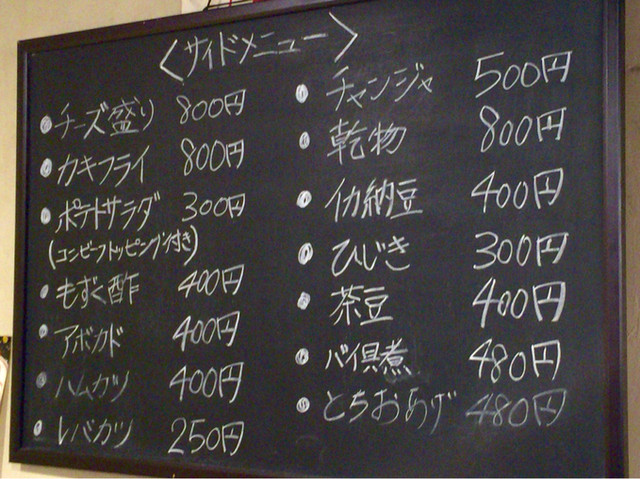 <サイドメニュー>
チーズ盛り 800円
カキフライ 800円
ポテトサラダ 300円
(コンビーフトッピング付き)
もずく酢 400円
アボカド 400円
ハムカツ 400円
レバカツ 250円
チャンジャ 500円
乾物 800円
イカ納豆 400円
ひじき 300円
茶豆 400円
バイ貝煮 480円
とちおあげ 480円